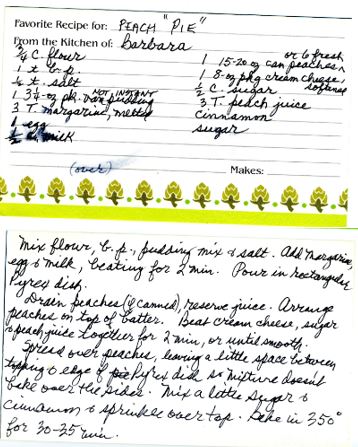 Favorite Recipe for: PEACH "PIE"
From the Kitchen of: Barbara
3/4 C. flour
1 t. b. p.
1/2 t. salt
NOT INSTANT
1 3 1/4-oz pk. van pudding
3 T. margarine, melted
1 egg
1/2 c. milk
or 6 fresh
1 15-20 oz can peaches
1 8-oz pkg cream cheese,
softened
1/2 C. sugar
3 T. peach juice
cinnamon
sugar
(over)
Makes:
Mix flour, b. p., pudding mix & salt. Add margarine,
egg & milk, beating for 2 min. Pour in rectangular
Pyrex dish.
Drain peaches (if canned), reserve juice. Arrange
peaches on top of batter. Beat cream cheese, sugar
& peach juice together for 2 min, or until smooth.
Spread over peaches, leaving a little space between
topping & edge of Pyrex dish so mixture doesn't
bake over the sides. Mix a little sugar &
cinnamon & sprinkle over top. Bake in 350°
for 30-35 min.